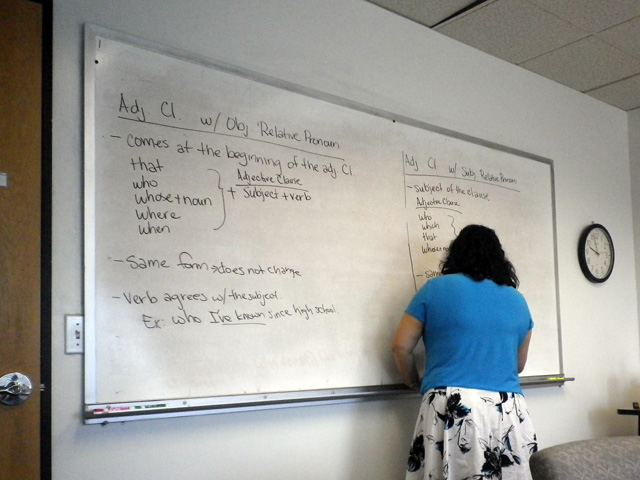 Adj Cl. w/ Obj Relative Pronoun
- comes at the beginning of the adj Cl
that
who
whose + noun
where
when
+ Adjective Clause
Subject + verb
- Same form → does not change
- Verb agrees w/ the subject.
Ex: who I've known since high school.
Adj Cl w/ Subj Relative Pronoun
- Subject of the clause
Adjective Clause
who
which
that
- same